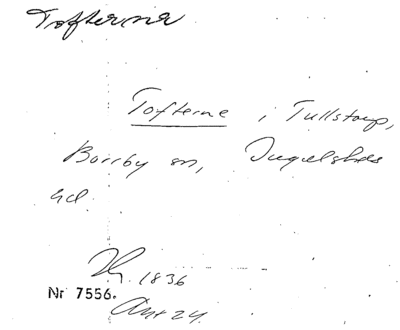 Tofterna
Tofterne i Tullstorp,
Borrby sn, Ingelstads
hd.
1836
Nr 7556.
Akt 24.